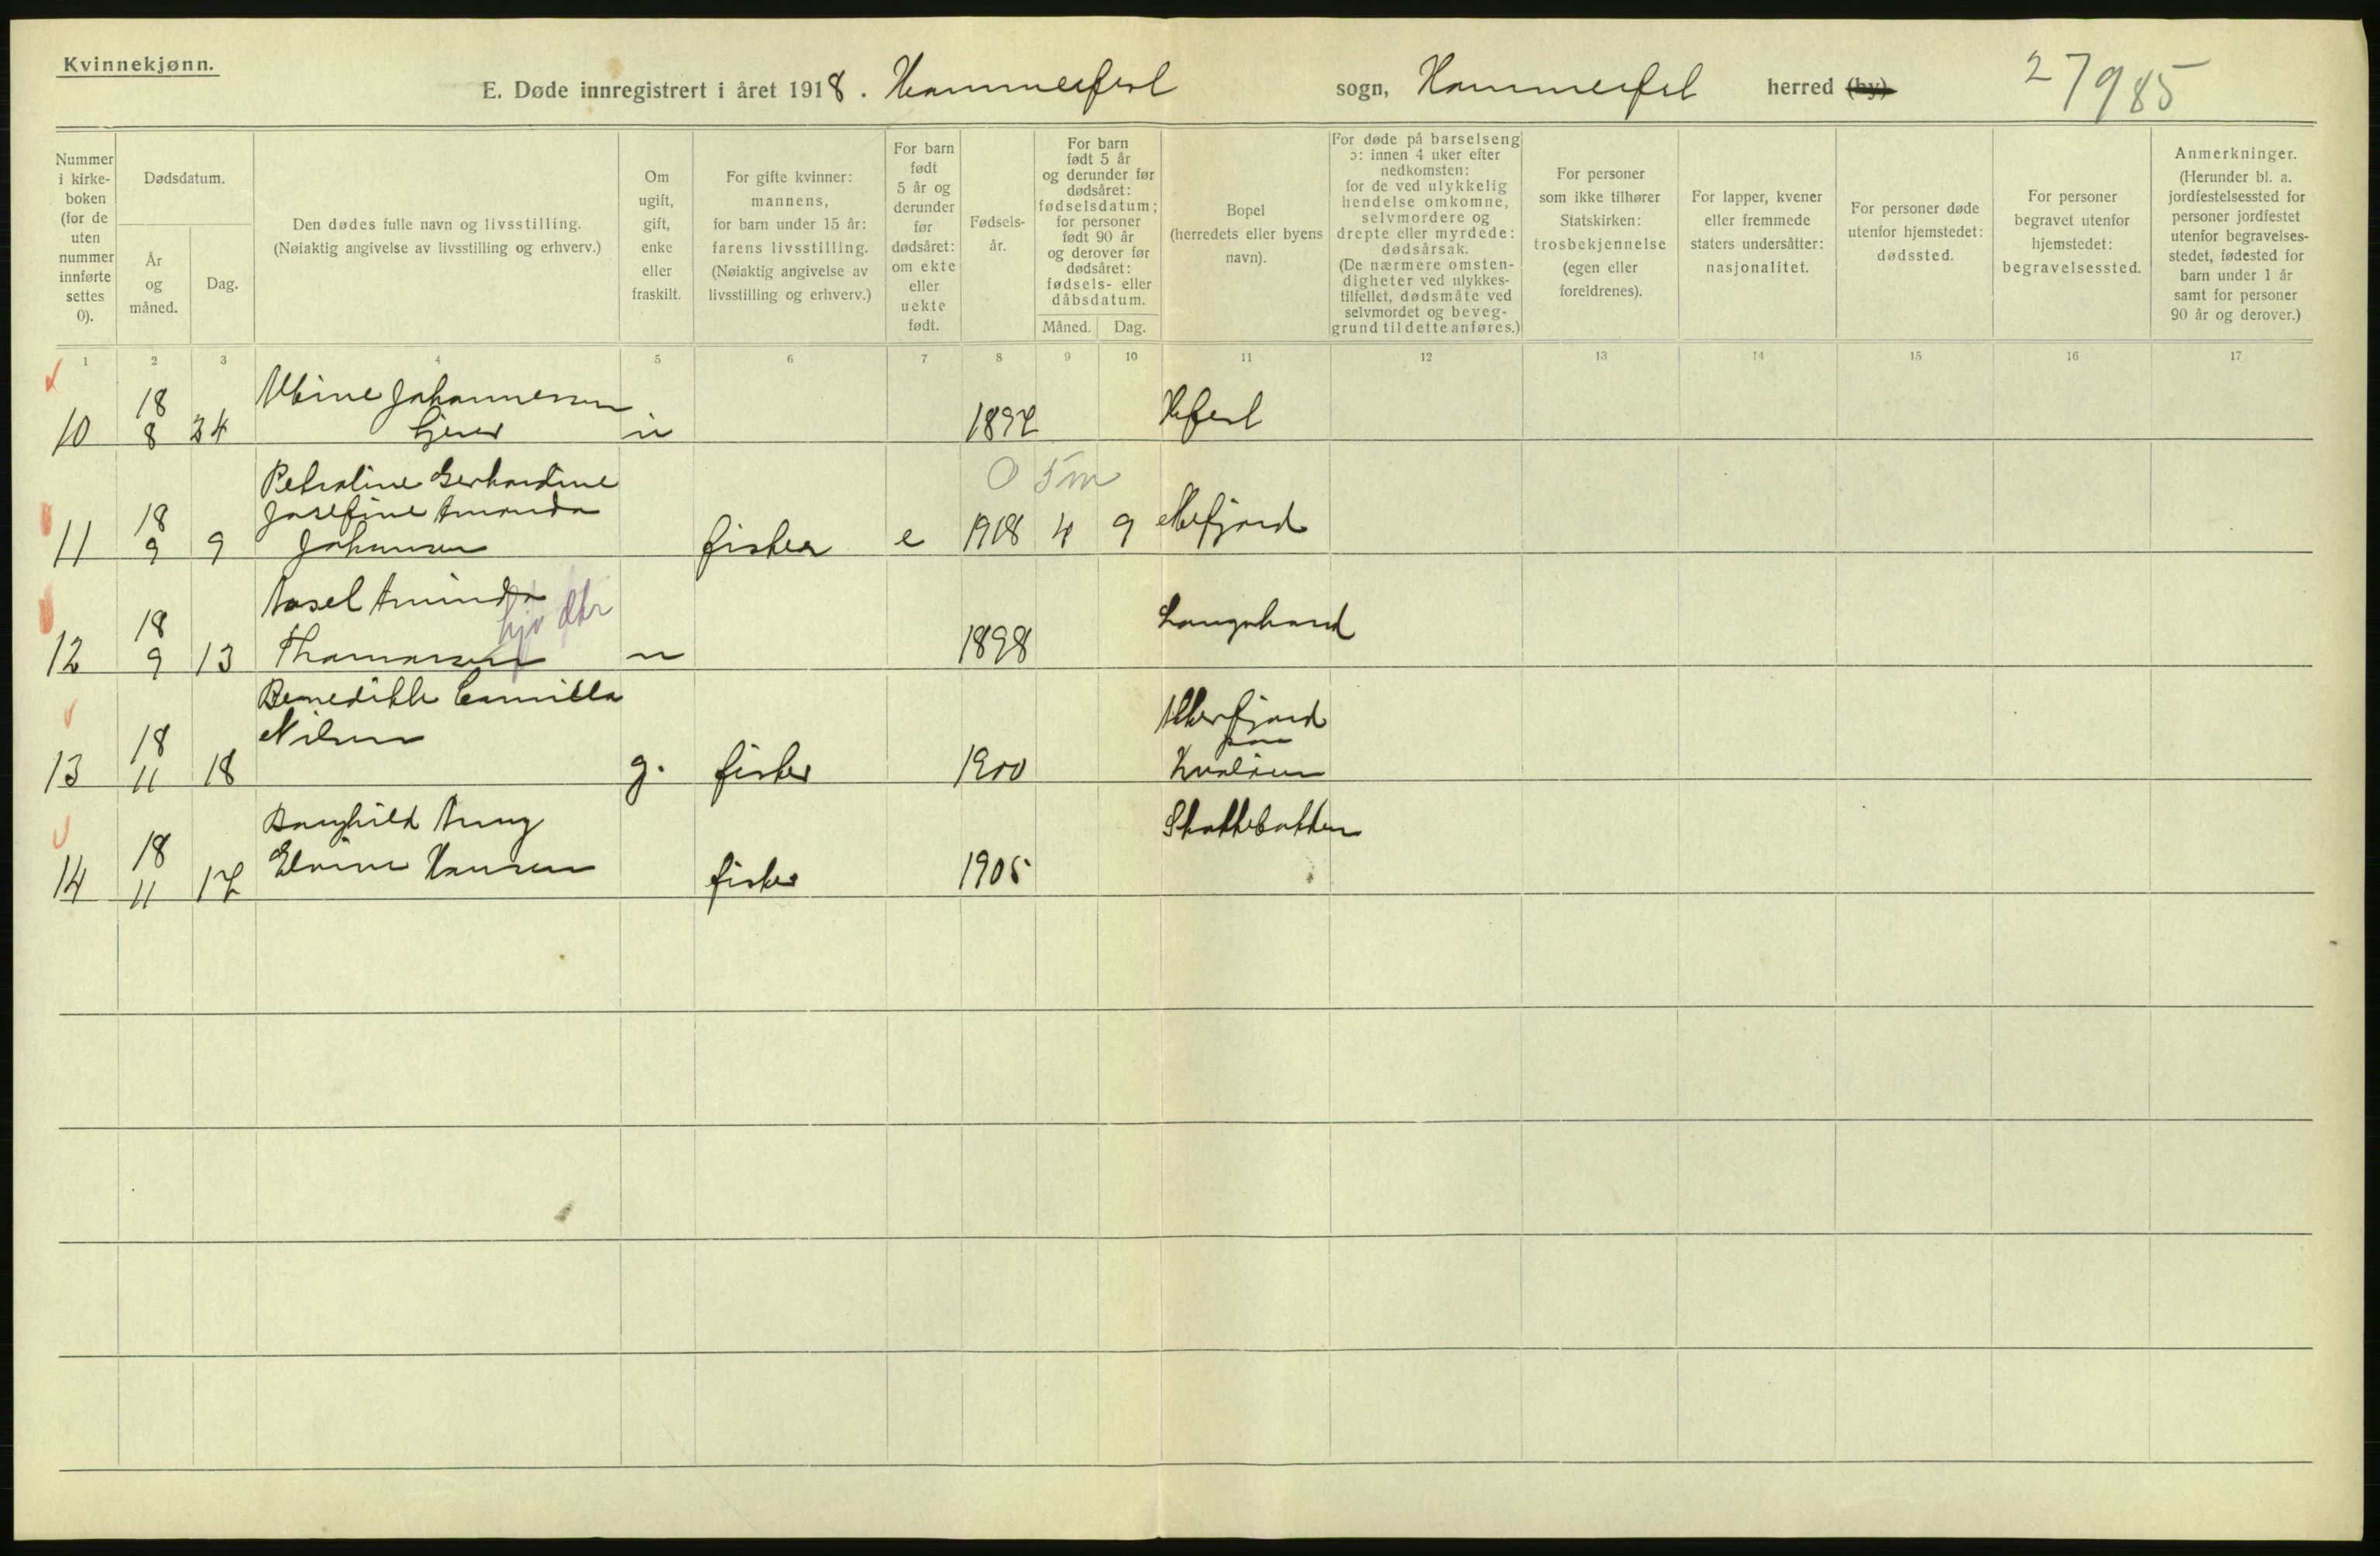 Kvinnekjønn.
E. Døde innregistrert i året 1918. Hammerfest sogn, Hammerfest herred (by) 27985
Nummer i kirke-boken (for de uten nummer innførte settes 0).
Dødsdatum.
År og måned.
Dag.
Den dødes fulle navn og livsstilling.
(Nøiaktig angivelse av livsstilling og erhverv.)
Om ugift, gift, enke eller fraskilt.
For gifte kvinner: mannens, for barn under 15 år: farens livsstilling. (Nøiaktig angivelse av livsstilling og erhverv.)
For barn født 5 år og derunder før dødsåret: om ekte eller uekte født.
Fødsels-år.
For barn født 5 år og derunder før dødsåret: fødselsdatum; for personer født 90 år og derover før dødsåret: fødsels- eller dåbsdatum.
Måned. Dag.
Bopel (herredets eller byens navn).
For døde på barselseng ɔ: innen 4 uker efter nedkomsten: for de ved ulykkelig hendelse omkomne, selvmordere og drepte eller myrdede: dødsårsak. (De nærmere omsten-digheter ved ulykkes-tilfellet, dødsmåte ved selvmordet og beveg-grund til dette anføres.)
For personer som ikke tilhører Statskirken: trosbekjennelse (egen eller foreldrenes).
For lapper, kvener eller fremmede staters undersåtter: nasjonalitet.
For personer døde utenfor hjemstedet: dødssted.
For personer begravet utenfor hjemstedet: begravelsessted.
Anmerkninger. (Herunder bl. a. jordfestelsessted for personer jordfestet utenfor begravelses-stedet, fødested for barn under 1 år samt for personer 90 år og derover.)
1 2 3 4 5 6 7 8 9 10 11 12 13 14 15 16 17
10 18 8 24 Johannessen u 1892 Hfest
Petraline Gerhardine 0 5 m
11 18 9 9 Josefine Amanda Johansen fisker e 1918 4 9
Aasel Aminda
12 18 9 13 Thomassen u 1898
Benedikte Camilla
Nilsen
13 18 11 18 g. fisker 1900 Akkerfjord paa Kvaløen
14 18 11 17 Hansen fisker 1905